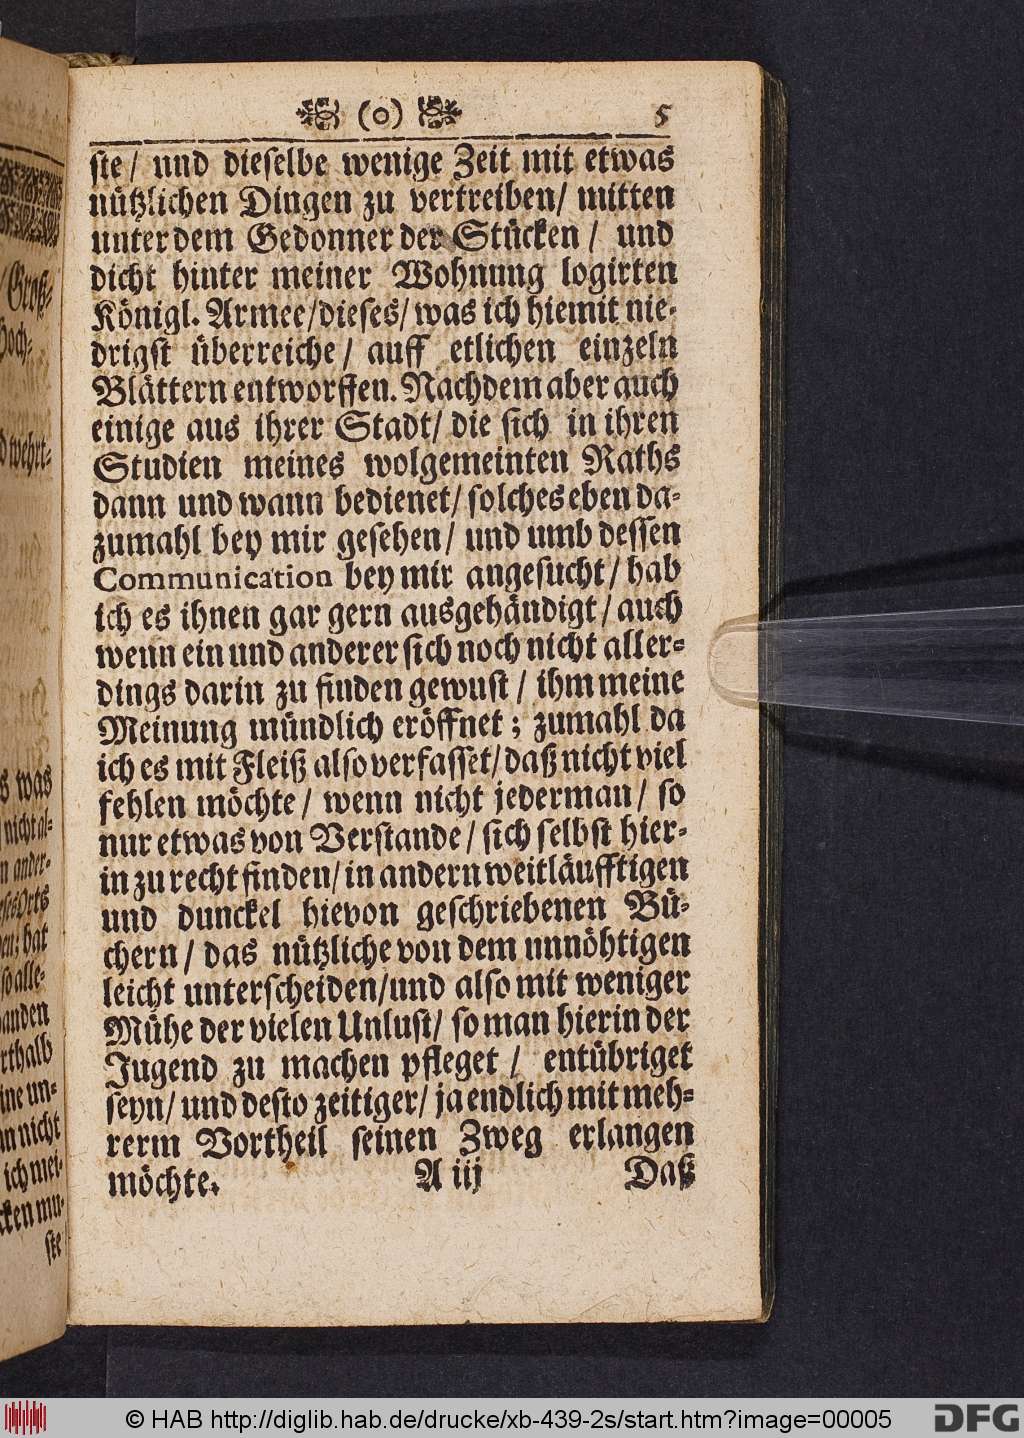 (o) 5
ste / und dieselbe wenige Zeit mit etwas
nützlichen Dingen zu vertreiben / mitten
unter dem Gedonner der Stücken / und
dicht hinter meiner Wohnung logirten
Königl. Armee / dieses / was ich hiemit nie-
drigst überreiche / auff etlichen einzeln
Blättern entworffen. Nachdem aber auch
einige aus ihrer Stadt / die sich in ihren
Studien meines wolgemeinten Raths
dann und wann bedienet / solches eben da-
zumahl bey mir gesehen / und umb dessen
Communication bey mir angesucht / hab
ich es ihnen gar gern ausgehändigt / auch
wenn ein und anderer sich noch nicht aller-
dings darin zu finden gewust / ihm meine
Meinung mündlich eröffnet ; zumahl da
ich es mit Fleiß also verfasset / daß nicht viel
fehlen möchte / wenn nicht jederman / so
nur etwas von Verstande / sich selbst hier-
in zu recht finden / in andern weitläufftigen
und dunckel hievon geschriebenen Bü-
chern / das nützliche von dem unnöhtigen
leicht unterscheiden / und also mit weniger
Mühe der vielen Unlust / so man hierin der
Jugend zu machen pfleget / entübriget
seyn / und desto zeitiger / ja endlich mit meh-
rerm Vortheil seinen Zweg erlangen
möchte. A iij Daß
© HAB http://diglib.hab.de/drucke/xb-439-2s/start.htm?image=00005
DFG